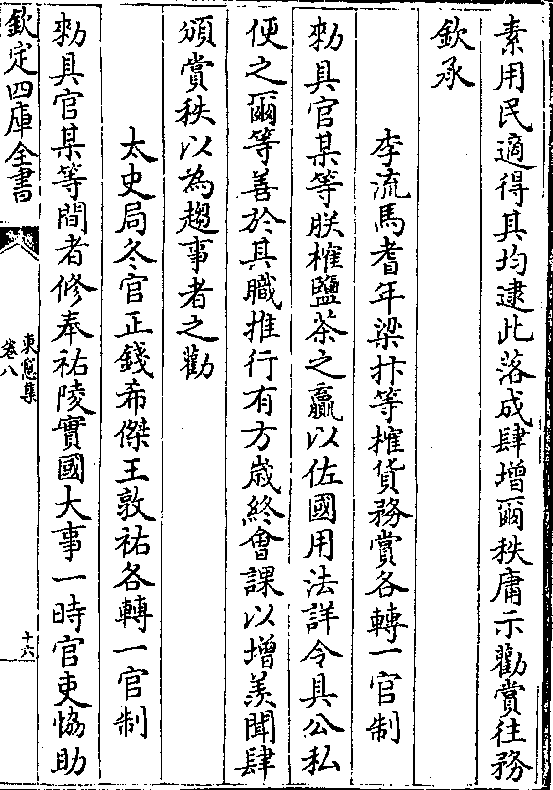 素用民適得其均逮此落成肆增爾秩庸示勸賞往務
欽承
李流馬耆年梁抃等榷貨務賞各轉一官制
勑具官某等朕榷鹽茶之贏以佐國用法詳令具公私
便之爾等善於其職推行有方歳終會課以增羨聞肆
頒賞秩以為趨事者之勸
太史局冬官正錢希傑王敦祐各轉一官制
勑具官某等間者修奉祐陵實國大事一時官吏恊助
欽定四庫全書
東牕集
卷八
十六